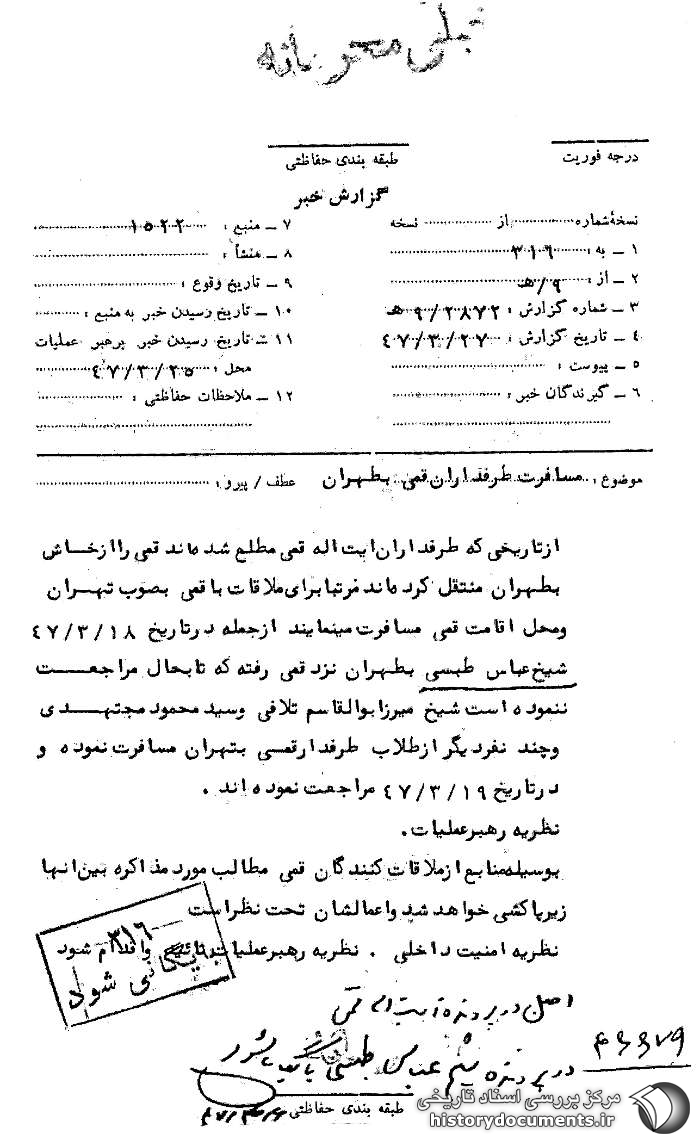 خیلی محرمانه
درجه فوریت
طبقه بندی حفاظتی
گزارش خبر
نسخهٔ شماره از نسخه
۱ – به : ۳۱۶
۲ – از : ۹/ﻫ
۳ – شماره گزارش : ۹/۲۸۷۲ ﻫ
۴ – تاریخ گزارش : ۴۷/۳/۲۷
۵ – پیوست :
۶ – گیرندگان خبر :
۷ – منبع : ۱۵۲۲
۸ – منشأ :
۹ – تاریخ وقوع :
۱۰ – تاریخ رسیدن خبر به منبع :
۱۱ – تاریخ رسیدن خبر برهبر عملیات
محل : ۴۷/۳/۲۵
۱۲ – ملاحظات حفاظتی :
موضوع : مسافرت طرفداران قمی بطهران
عطف / پیرو :
ازتاریخی که طرفداران ایت اله قمی مطلع شده‌اند قمی را ازخاش
بطهران منتقل کرده‌اند مرتبا برای ملاقات با قمی بصوب تهران
ومحل اقامت قمی مسافرت مینمایند ازجمله درتاریخ ۴۷/۳/۱۸
شیخ عباس طبسی بطهران نزد قمی رفته که تا بحال مراجعت
ننموده است شیخ میرزابوالقاسم تلافی وسید محمود مجتهدی
وچند نفردیگر ازطلاب طرفدار قمی بتهران مسافرت نموده و
درتاریخ ۴۷/۳/۱۹ مراجعت نموده اند .
نظریه رهبرعملیات .
بوسیله منابع ازملاقات کنندگان قمی مطالب مورد مذاکره بین انها
زیرپاکشی خواهد شد واعمالشان تحت نظراست
نظریه امنیت داخلی . نظریه رهبرعملیات تائید واقدام شود
۳۱۶
بایگانی شود
اصل در پرونده آیت اله قمی
در پرونده شیخ عباس طبسی بایگانی شود
۴۶۶۷۹
طبقه بندی حفاظتی
مرکز بررسی اسناد تاریخی
historydocuments.ir